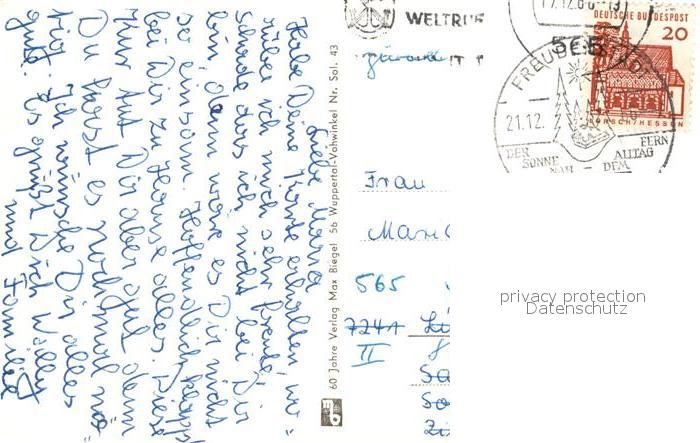 Liebe Mama
Habe Deine Karte erhalten, wo=
rüber ich mich sehr freute!
Schade das ich nicht bei Dir
bin dann wäre es Dir nicht
so einsam. Hoffendlich klappt
bei Dir zu Hause alles. Diese
Kur tut Dir aber gut denn
Du hast es noch mal nö=
tig. Ich wünsche Dir alles
gute. Es grüßt Dich Willy
und Familie
60 Jahre Verlag Max Biegel 56 Wuppertal-Vohwinkel Nr. Sol. 43
WELTRUF
zurück
17.12.66-13
565
DEUTSCHE BUNDESPOST
20
LORSCH/HESSEN
FREUDENSTADT
21.12.
DER SONNE NAH
DEM ALLTAG FERN
Frau
565
724A
II
privacy protection
Datenschutz